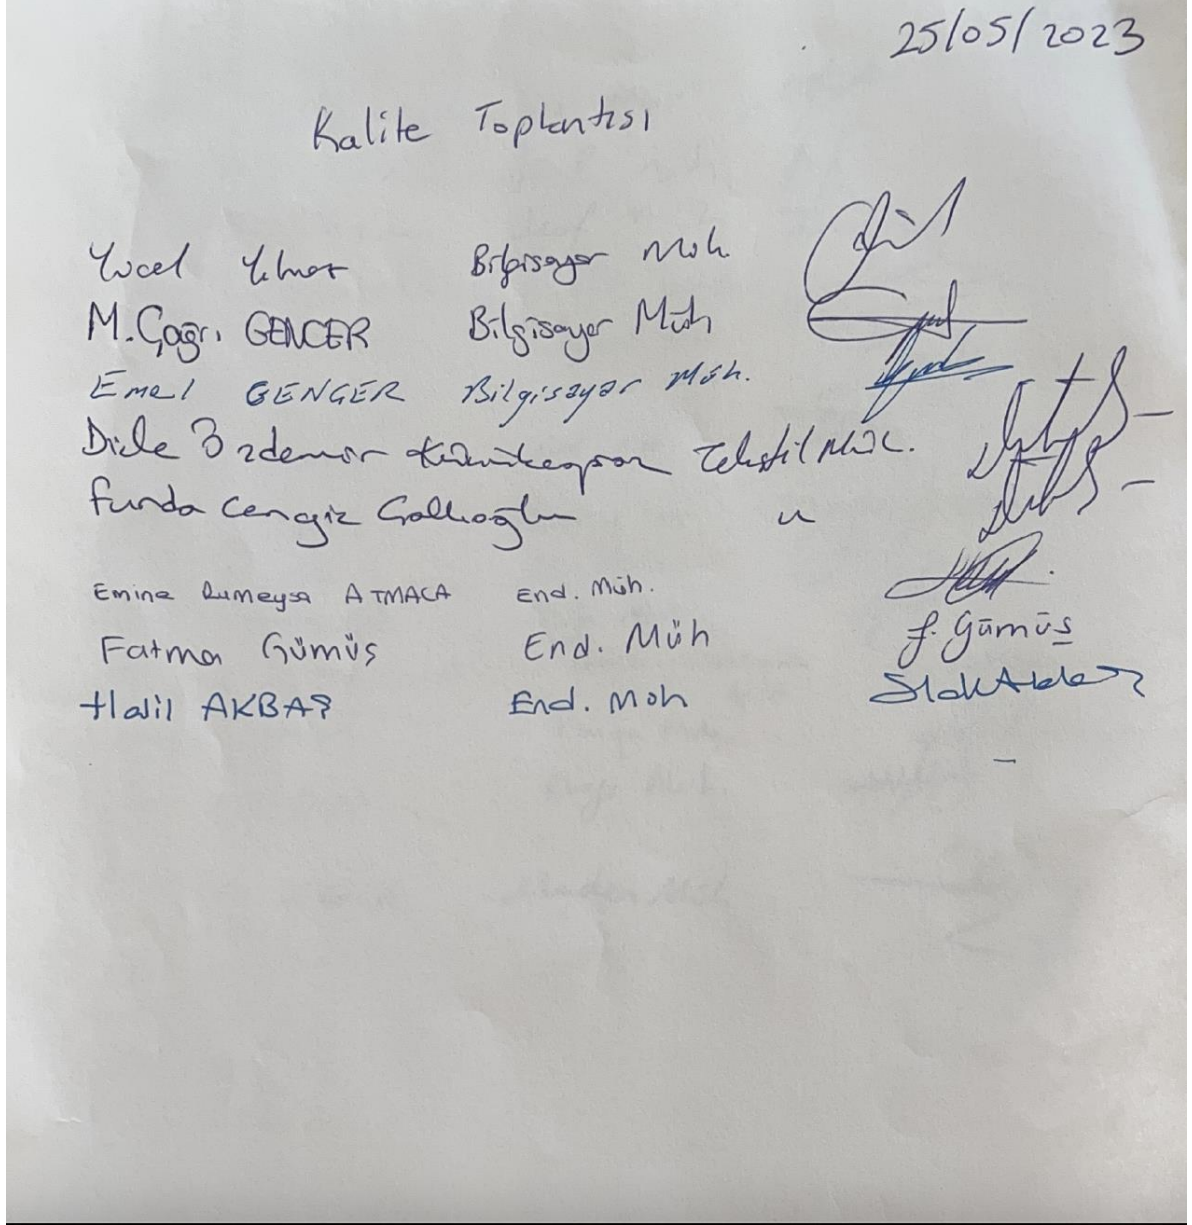 25/05/2023
Kalite Toplantısı
Yücel Yılmaz Bilgisayar Müh.
M. Çağrı GENCER Bilgisayar Müh
Emel GENCER Bilgisayar Müh.
Dicle Özdemir Tekstil Müh.
Funda Cengiz Çallıoğlu "
Emine Rumeysa ATMACA End. Müh.
Fatma Gümüş End. Müh f. Gümüş
Halil AKBAŞ End. Müh